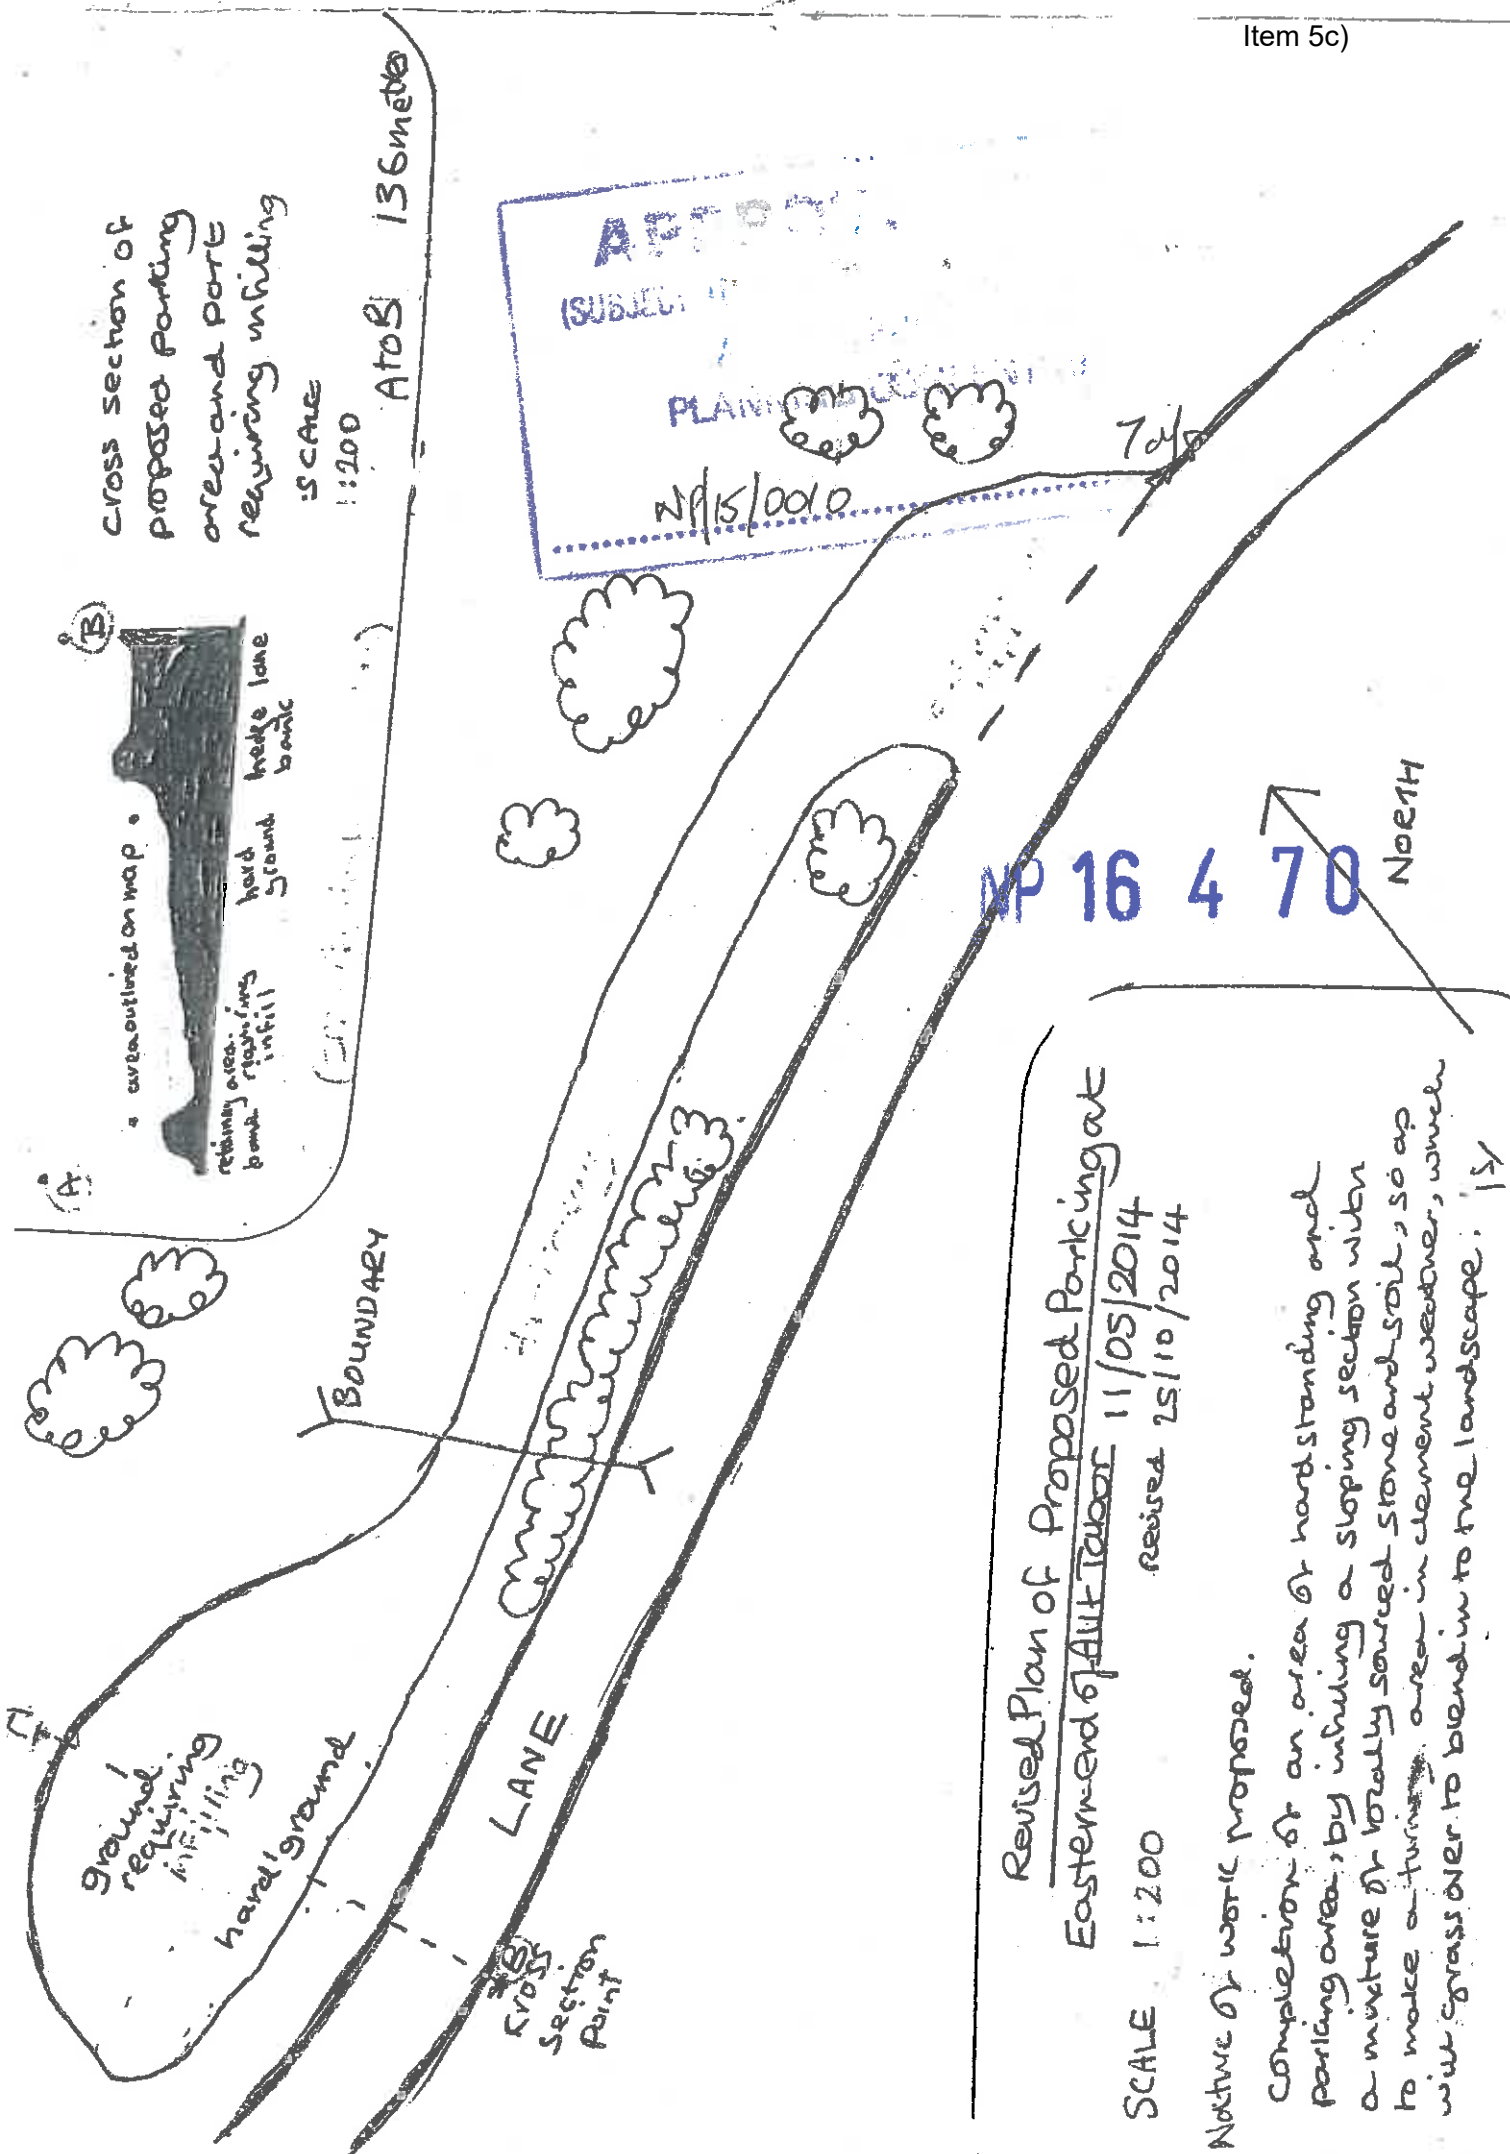 Item 5c)
cross section of
proposed parking
area and part
requiring infilling
SCALE
1:200
A to B 136metres
A
B
area outlined on map
retaining
bank
area
requiring
infill
hard
ground
hedge
bank
lane
(SUBJECT
NP/15/0010
NP 16 4 70
NORTH
BOUNDARY
ground
requiring
infilling
hard ground
LANE
B
cross
section
point
Revised Plan of Proposed Parking at
Eastern end of Allt Tabor 11/05/2014
Revised 25/10/2014
SCALE 1:200
Nature of work proposed.
Completion of an area of hardstanding and
parking area, by infilling a sloping section with
a mixture of locally sourced stone and soil, so as
to make a turning area in clement weather, which
will grass over to blend in to the landscape.